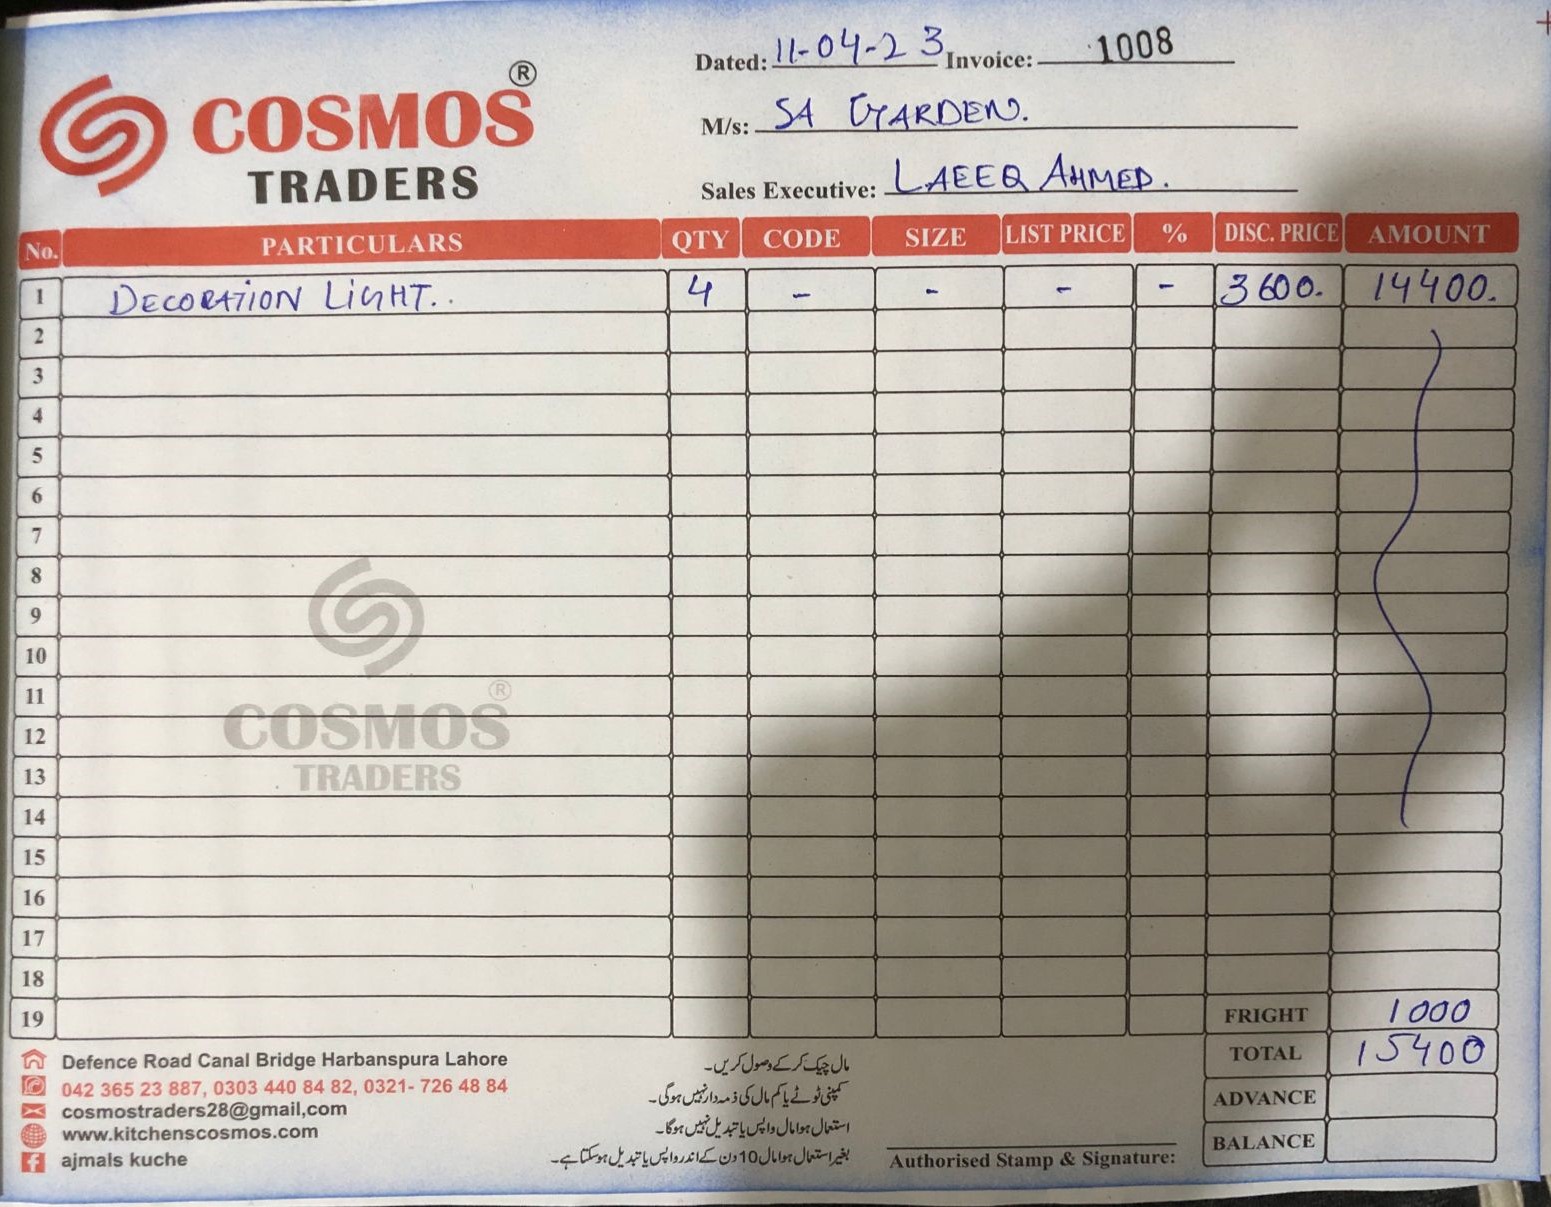 Dated: 11-04-23 Invoice: 1008
COSMOS ®
TRADERS
M/s: SA GARDEN.
Sales Executive: LAEEQ AHMED.
No. PARTICULARS QTY CODE SIZE LIST PRICE % DISC. PRICE AMOUNT
1 DECORATION LIGHT.. 4 - - - - 3600. 14400.
2
3
4
5
6
7
8
9
10
11
12
13
14
15
16
17
18
19
COSMOS ®
TRADERS
FRIGHT 1000
TOTAL 15400
ADVANCE
BALANCE
Defence Road Canal Bridge Harbanspura Lahore
042 365 23 887, 0303 440 84 82, 0321- 726 48 84
cosmostraders28@gmail,com
www.kitchenscosmos.com
ajmals kuche
مال چیک کر کے وصول کریں۔
کمپنی ٹوٹے یا کم مال کی ذمہ دار نہیں ہوگی۔
استعمال ہوا مال واپس یا تبدیل نہیں ہوگا۔
بغیر استعمال ہوا مال 10 دن کے اندر واپس یا تبدیل ہوسکتا ہے۔
Authorised Stamp & Signature: